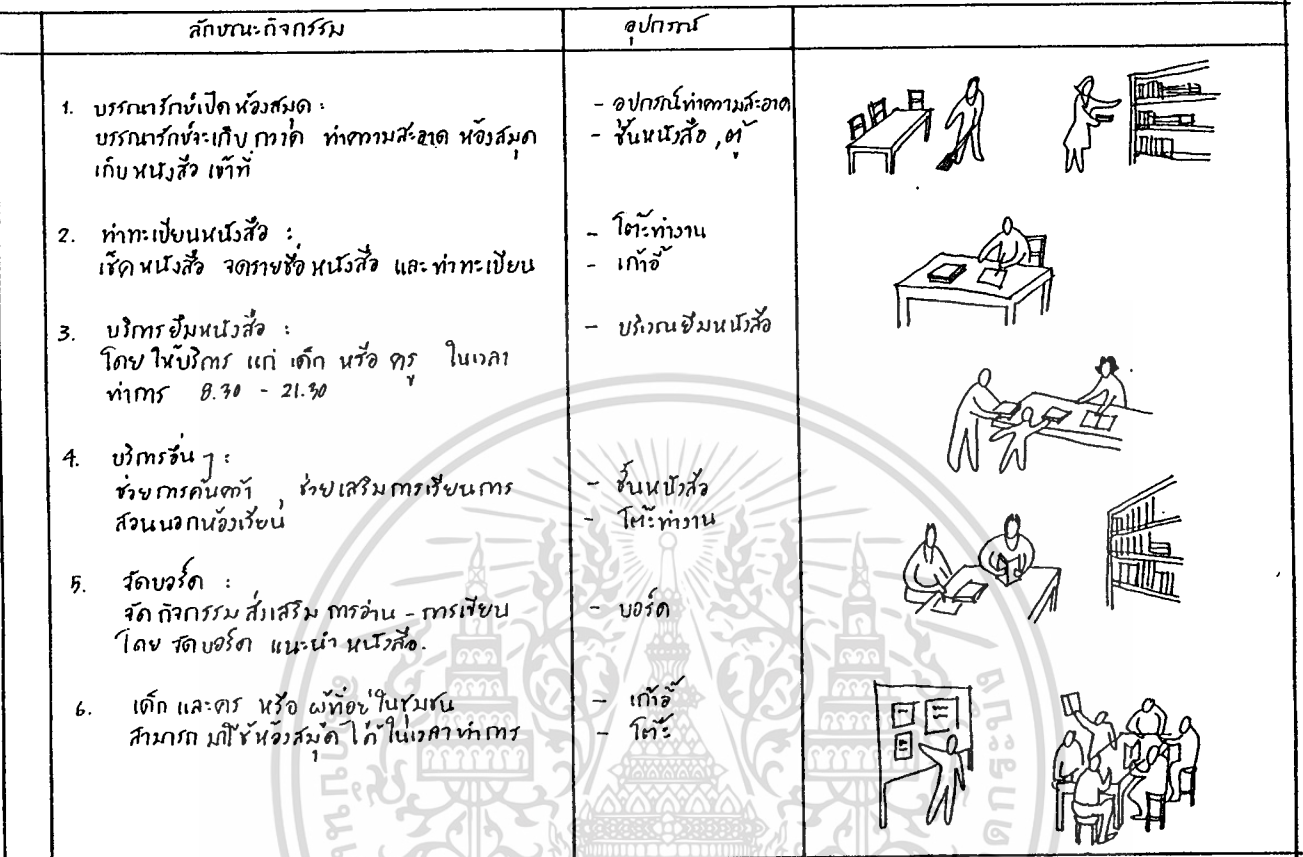 ลักษณะกิจกรรม
อุปกรณ์
1. บรรณารักษ์เปิดห้องสมุด :
บรรณารักษ์จะเก็บ กวาด ทำความสะอาด ห้องสมุด
เก็บหนังสือ เข้าที่
- อุปกรณ์ทำความสะอาด
- ชั้นหนังสือ , ตู้
2. ทำทะเบียนหนังสือ :
เช็คหนังสือ จดรายชื่อหนังสือ และทำทะเบียน
- โต๊ะทำงาน
- เก้าอี้
3. บริการยืมหนังสือ :
โดย ให้บริการ แก่ เด็ก หรือ ครู ในเวลา
ทำการ 8.30 - 21.30
- บริเวณยืมหนังสือ
4. บริการอื่น ๆ :
ช่วยการค้นคว้า , ช่วยเสริมการเรียนการ
สอนนอกห้องเรียน
- ชั้นหนังสือ
- โต๊ะทำงาน
5. จัดบอร์ด :
จัด กิจกรรม ส่งเสริม การอ่าน - การเขียน
โดย จัดบอร์ด แนะนำ หนังสือ.
- บอร์ด
6. เด็ก และครู หรือ ผู้ที่อยู่ในชุมชน
สามารถ มาใช้ห้องสมุด ได้ในเวลาทำการ
- เก้าอี้
- โต๊ะ